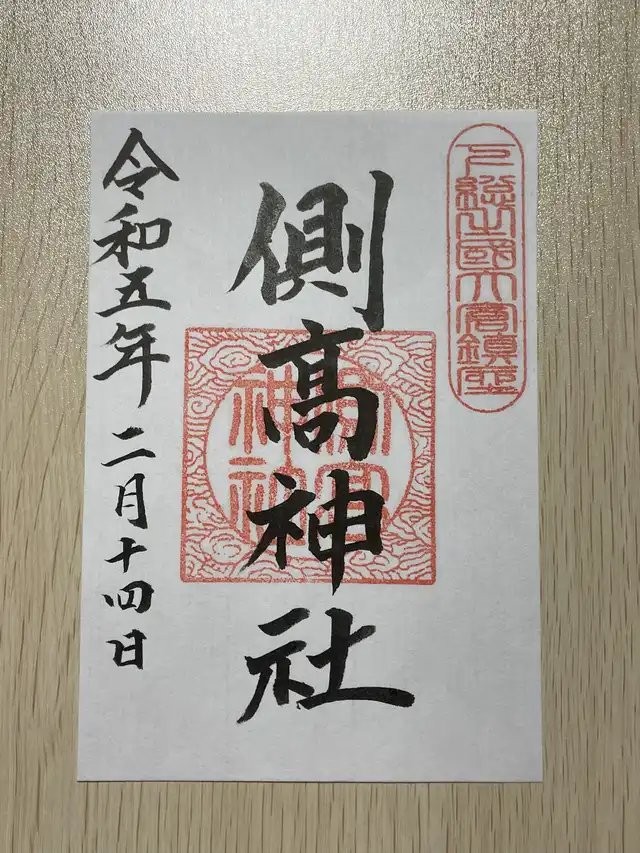 下総之國大倉鎮座
側高神社
側高神社
令和五年二月十四日